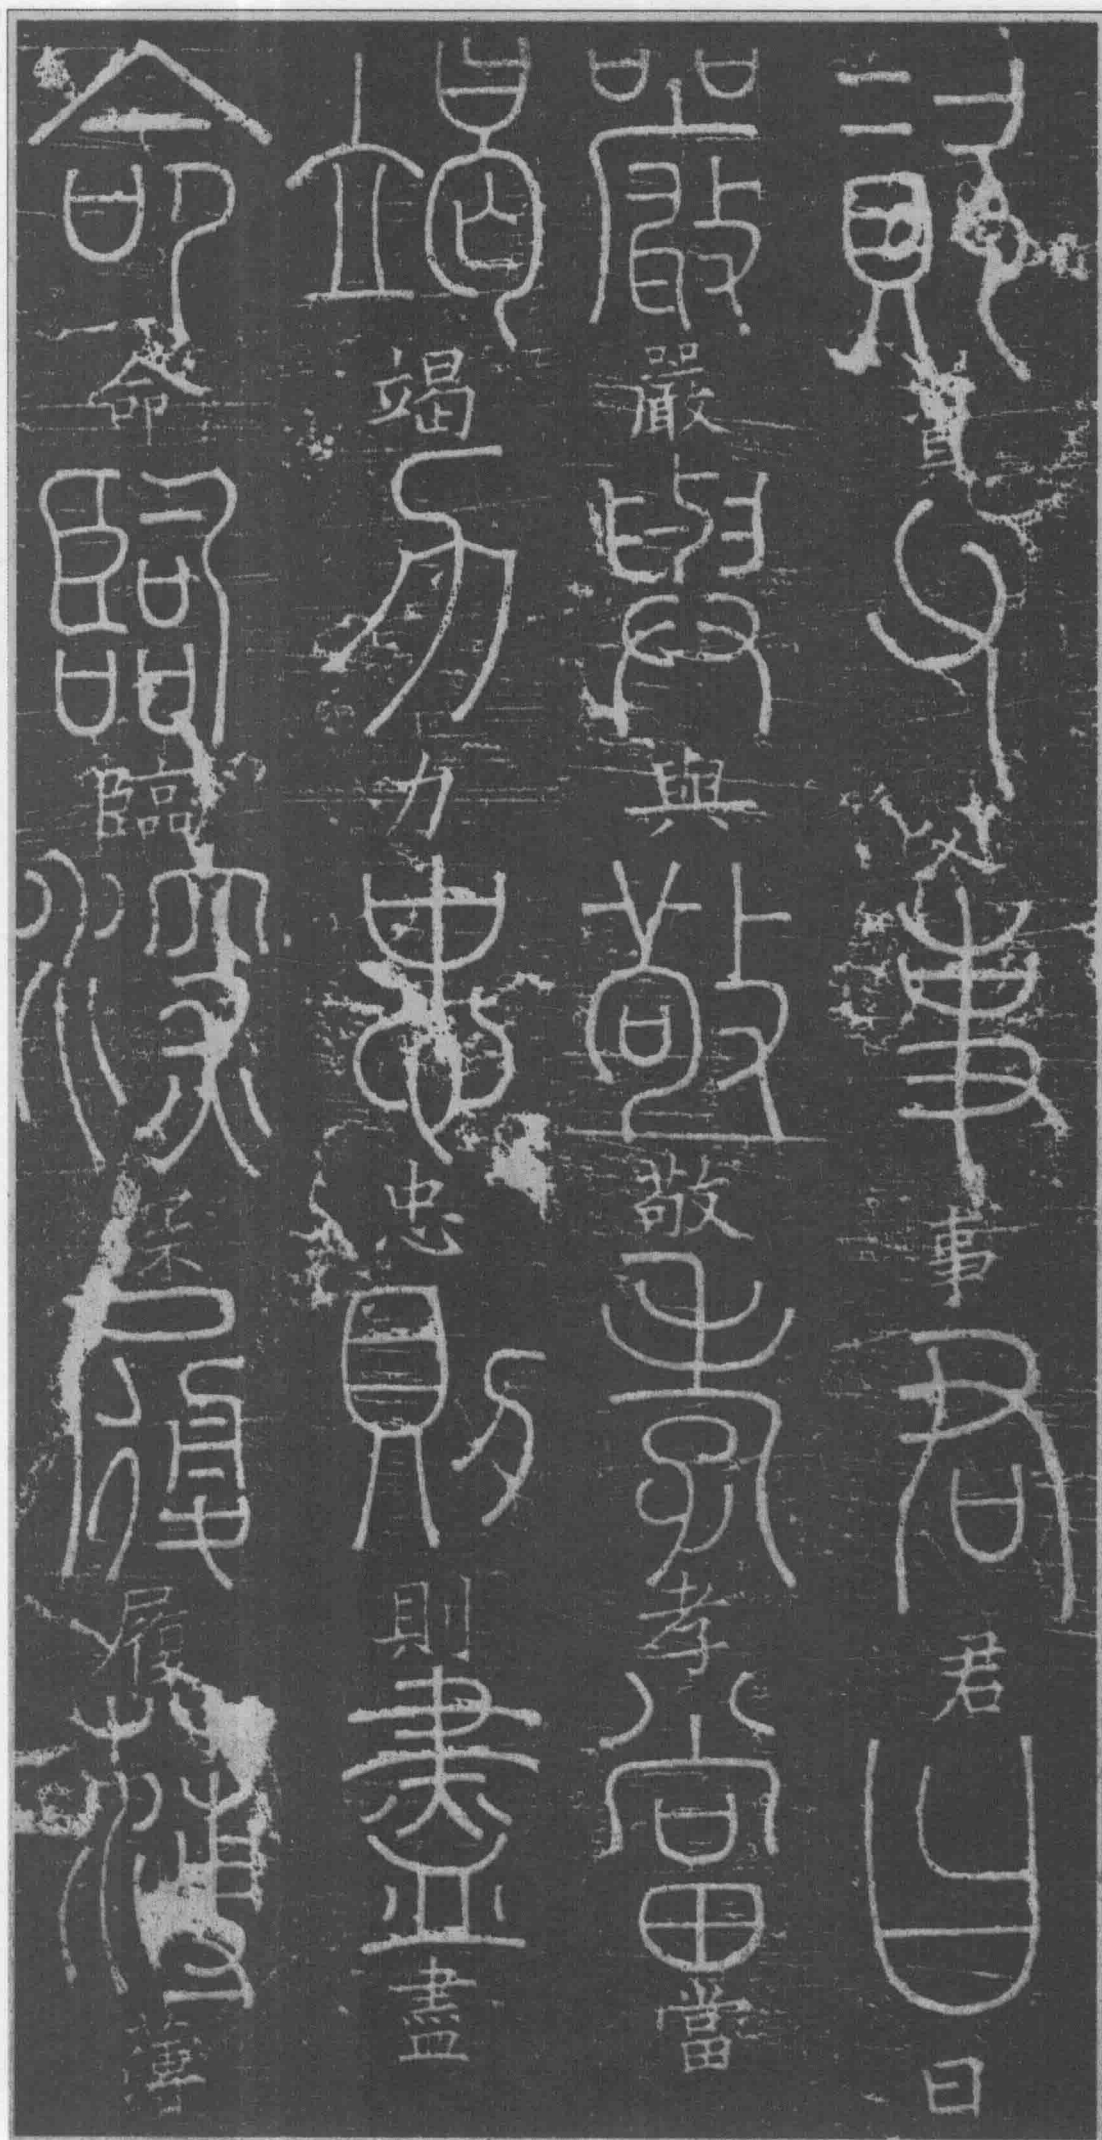 資資父父事事君君曰曰
嚴嚴與與敬敬孝孝當當
竭竭力力忠忠則則盡盡
命命臨臨深深履履薄薄